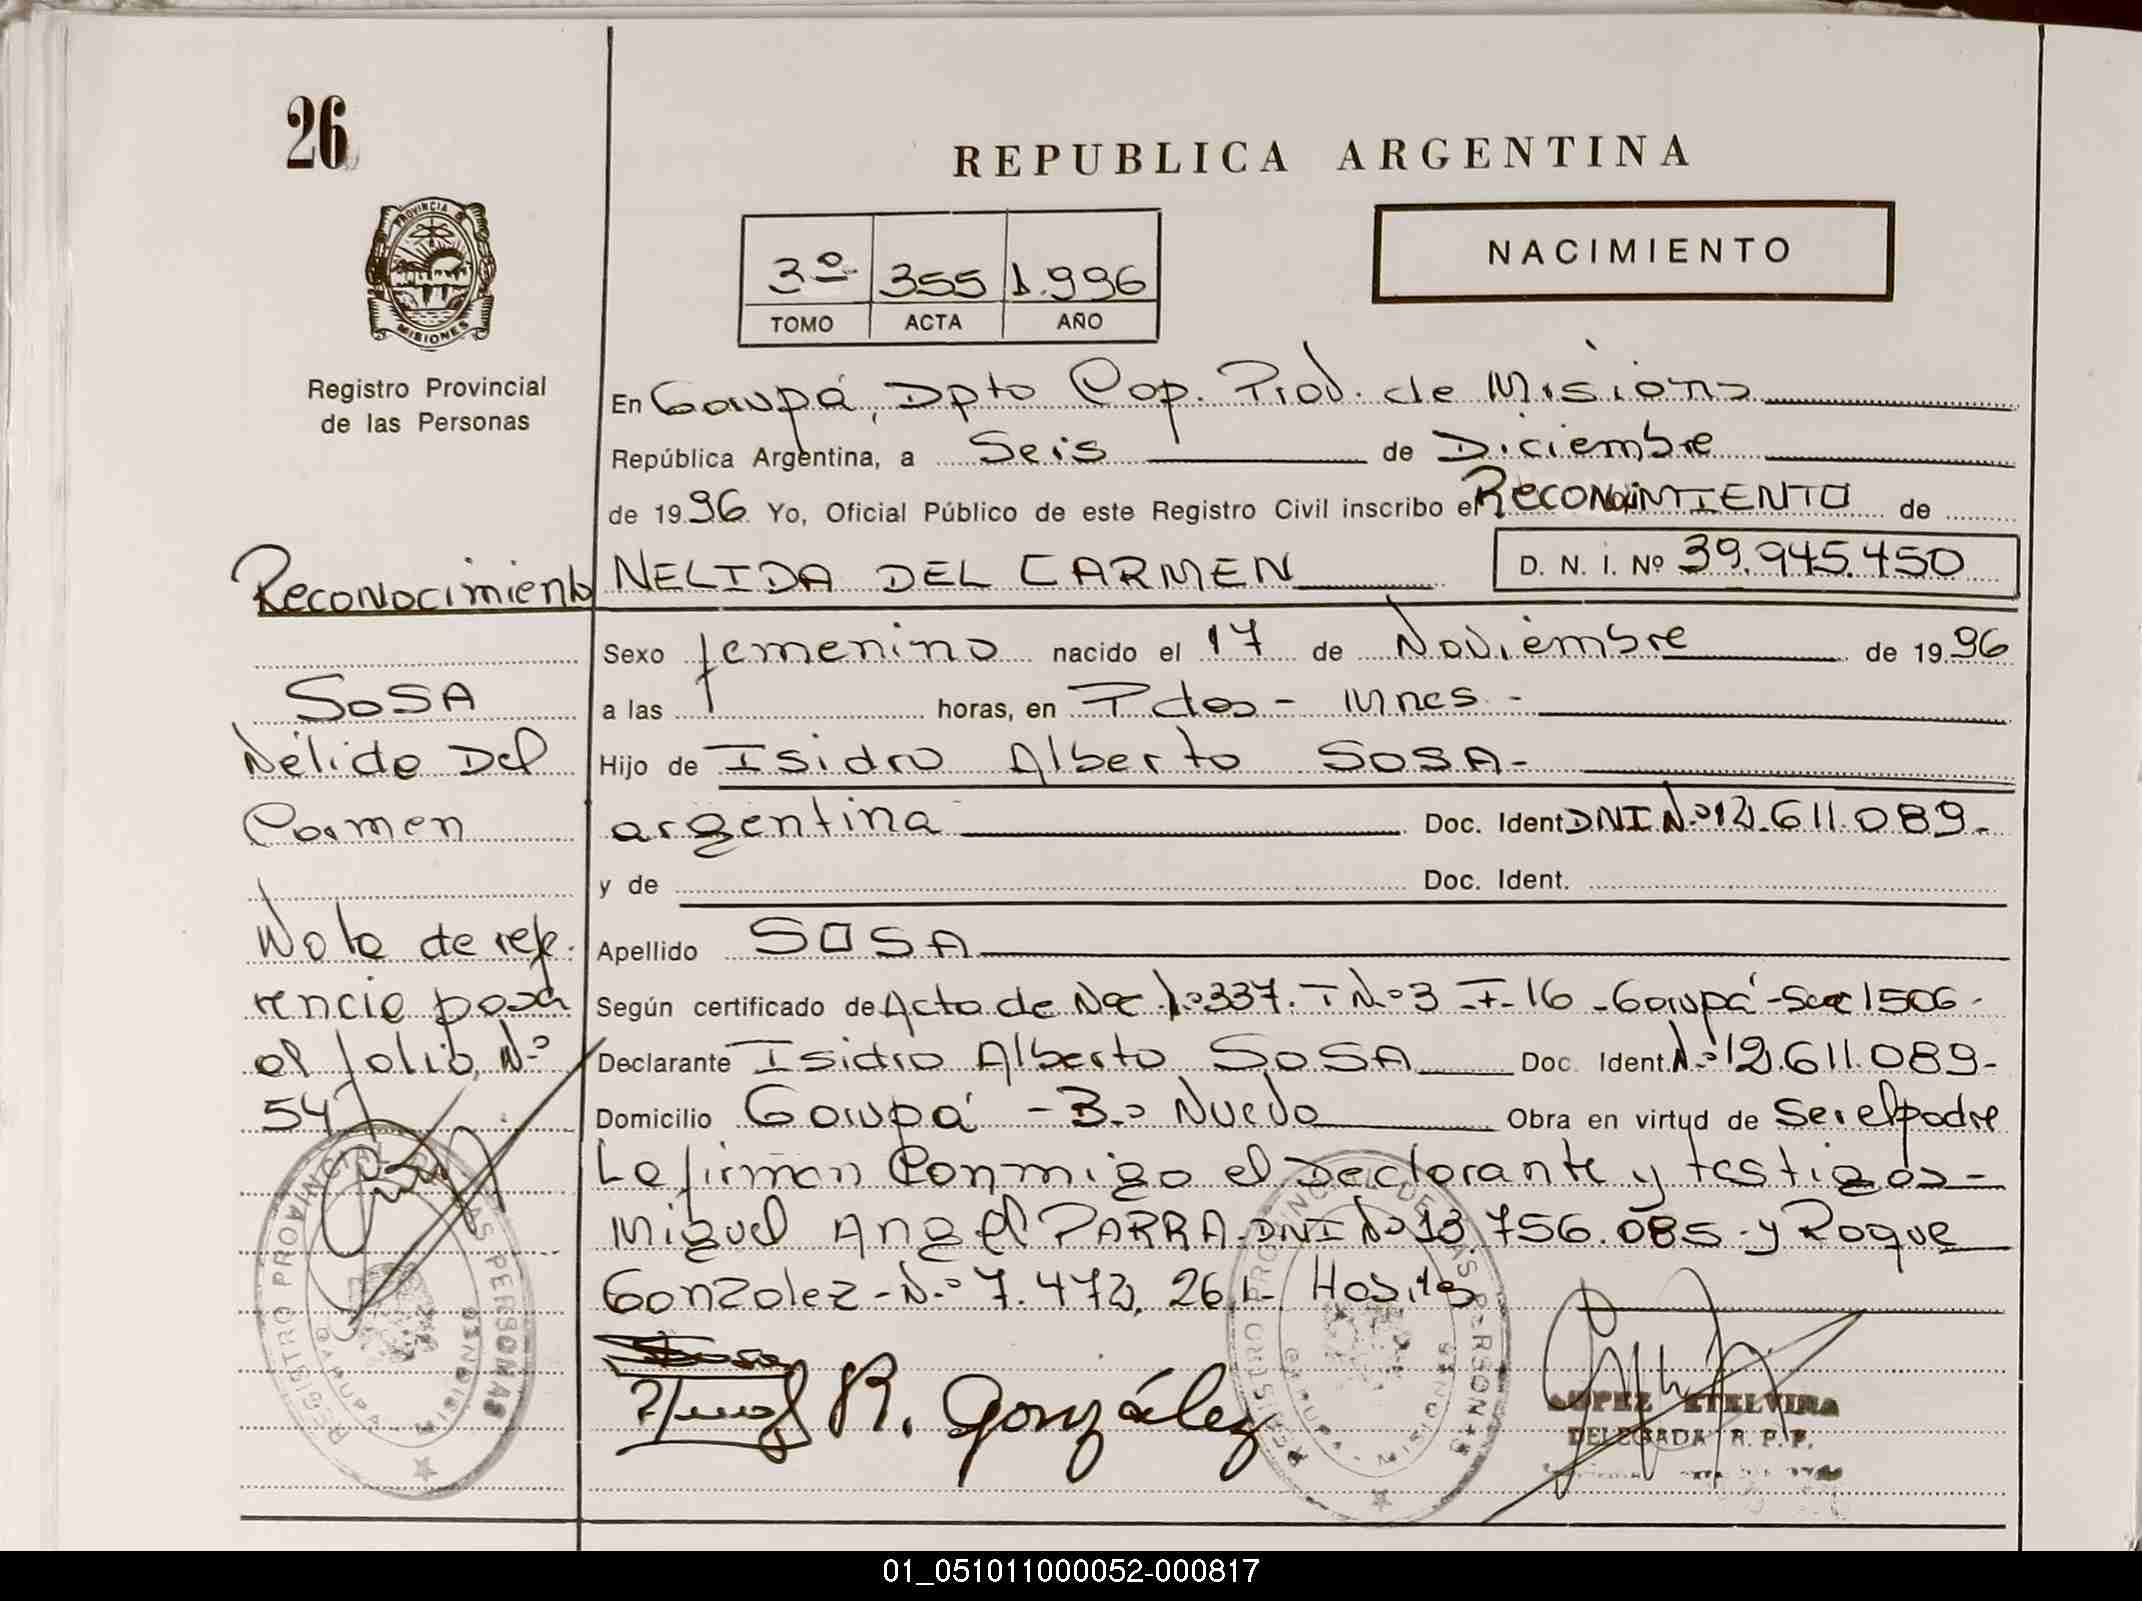 26
REPUBLICA ARGENTINA
PROVINCIA DE
MISIONES
NACIMIENTO
3º 355 1.996
TOMO ACTA AÑO
Registro Provincial
de las Personas
En Garupá, Dpto Cap. Prov. de Misiones
República Argentina, a Seis de Diciembre
de 1996 Yo, Oficial Público de este Registro Civil inscribo el RECONOCIMIENTO de
NELIDA DEL CARMEN D. N. i. Nº 39.945.450
Sexo femenino nacido el 17 de Noviembre de 1996
a las horas, en Pdas - Mnes -
Hijo de Isidro Alberto SOSA -
argentina Doc. Ident DNI N.º 12.611.089 -
y de Doc. Ident.
Apellido SOSA
Según certificado de Acta de Nac. Nº 337. T Nº 3 - F - 16 - Garupá - Sec 1506 -
Declarante Isidro Alberto SOSA Doc. Ident. Nº 12.611.089 -
Domicilio Garupá - Bº Nuevo Obra en virtud de Ser el padre
La firman Conmigo el Declarante y testigos -
Miguel Angel PARRA - DNI Nº 13.756.085 - y Roque
Gonzalez - N.º 7.472, 261 - Habiles
R. González
LOPEZ ETELVINA
DELEGADA R. P. P.
Reconocimiento
SOSA
Nélida Del
Carmen
Nota de refe-
rencia pasa
al folio N.º
54
REGISTRO PROVINCIAL DE LAS PERSONAS
GARUPA - MISIONES
REGISTRO PROVINCIAL DE LAS PERSONAS
GARUPA - MISIONES
01_051011000052-000817